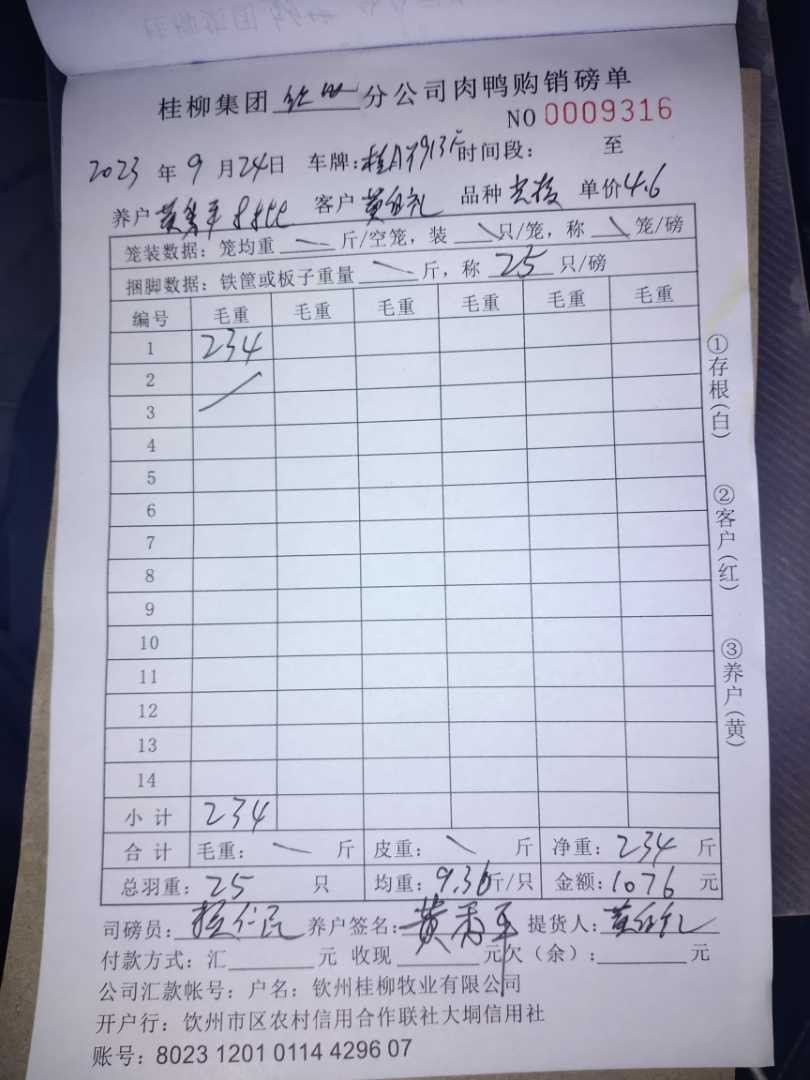 桂柳集团 钦州 分公司肉鸭购销磅单
NO 0009316
2023 年 9 月 24 日 车牌: 时间段: 至
养户 客户 品种 单价 4.6
笼装数据: 笼均重 斤/空笼, 装 只/笼, 称 笼/磅
捆脚数据: 铁筐或板子重量 斤, 称 25 只/磅
编号 毛重 毛重 毛重 毛重 毛重 毛重
1 234
2
3
4
5
6
7
8
9
10
11
12
13
14
小计 234
合计 毛重: 斤 皮重: 斤 净重: 234 斤
总羽重: 25 只 均重: 9.36 斤/只 金额: 1076 元
司磅员: 养户签名: 提货人:
付款方式: 汇 元 收现 元欠(余): 元
公司汇款帐号: 户名: 钦州桂柳牧业有限公司
开户行: 钦州市区农村信用合作联社大垌信用社
账号: 8023 1201 0114 4296 07
①存根(白)
②客户(红)
③养户(黄)